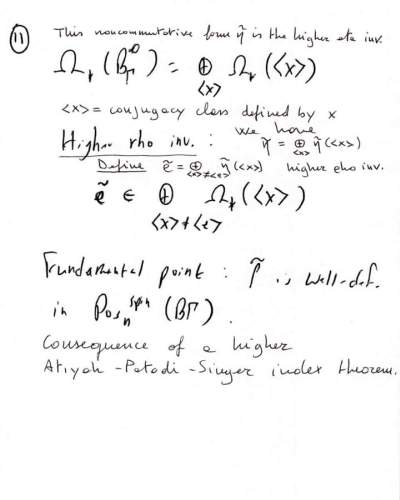 11
This noncommutative form η̃ is the higher eta inv.
Ω_*(B_Γ^∞) = ⊕_{<x>} Ω_*(<x>)
<x> = conjugacy class defined by x
Higher rho inv. : we have η̃ = ⊕_{<x>} η̃(<x>)
Define ρ̃ = ⊕_{<x>≠<e>} η̃(<x>) higher rho inv.
ρ̃ ∈ ⊕_{<x>≠<e>} Ω_*(<x>)
Fundamental point : ρ̃ is well-def.
in Pos_n^{spin}(BΓ).
Consequence of a higher
Atiyah-Patodi-Singer index theorem.